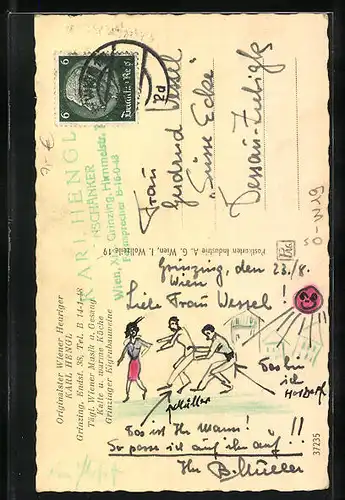 Originalster Wiener Heuriger
KARL HENGL
Grinzing, Endst. 38, Tel. B 14-1-48
Tägl. Wiener Musik u. Gesang
Kalte u. warme Küche
Grinzinger Eigenbauweine
KARL HENGL
Wien, XIX., Grinzing, Himmelstr.
Fernsprecher B-16-0-48
Postkarten Industrie A. G. Wien, I. Wollzeile 19
PAG
37235
6
Deutsches Reich
6
Frau
Gertrud Wessel
"Süsse Ecke"
Dessau-Ziebigk
Grinzing, den 23./8.
Wien
Liebe Frau Wessel!
Das bin
ich
Müller
Das ist Ihr Mann!
So passe ich auf ihn auf!!!
Ihr B. Müller